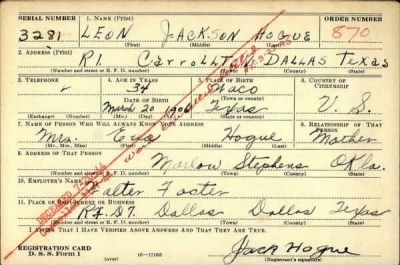 SERIAL NUMBER 1. NAME (Print) ORDER NUMBER
3281 LEON JACKSON HOGUE 870
(First) (Middle) (Last)
2. ADDRESS (Print)
R1 CARROLLTON DALLAS TEXAS
(Number and street or R. F. D. number) (Town) (County) (State)
3. TELEPHONE 4. AGE IN YEARS 5. PLACE OF BIRTH 6. COUNTRY OF CITIZENSHIP
34 Waco
DATE OF BIRTH (Town or county)
March 20 1906 Texas U. S.
(Exchange) (Number) (Mo.) (Day) (Yr.) (State or country)
7. NAME OF PERSON WHO WILL ALWAYS KNOW YOUR ADDRESS 8. RELATIONSHIP OF THAT PERSON
Mrs. Hogue Mother
(Mr., Mrs., Miss) (First) (Middle) (Last)
9. ADDRESS OF THAT PERSON
Marlow Stephens Okla.
(Number and street or R. F. D. number) (Town) (County) (State)
10. EMPLOYER'S NAME
Walter Foster
11. PLACE OF EMPLOYMENT OR BUSINESS
R.F.D 7 Dallas Dallas Texas
(Number and street or R. F. D. number) (Town) (County) (State)
I AFFIRM THAT I HAVE VERIFIED ABOVE ANSWERS AND THAT THEY ARE TRUE.
REGISTRATION CARD
D. S. S. Form 1 (over) 16—17105
Jack Hogue
(Registrant's signature)